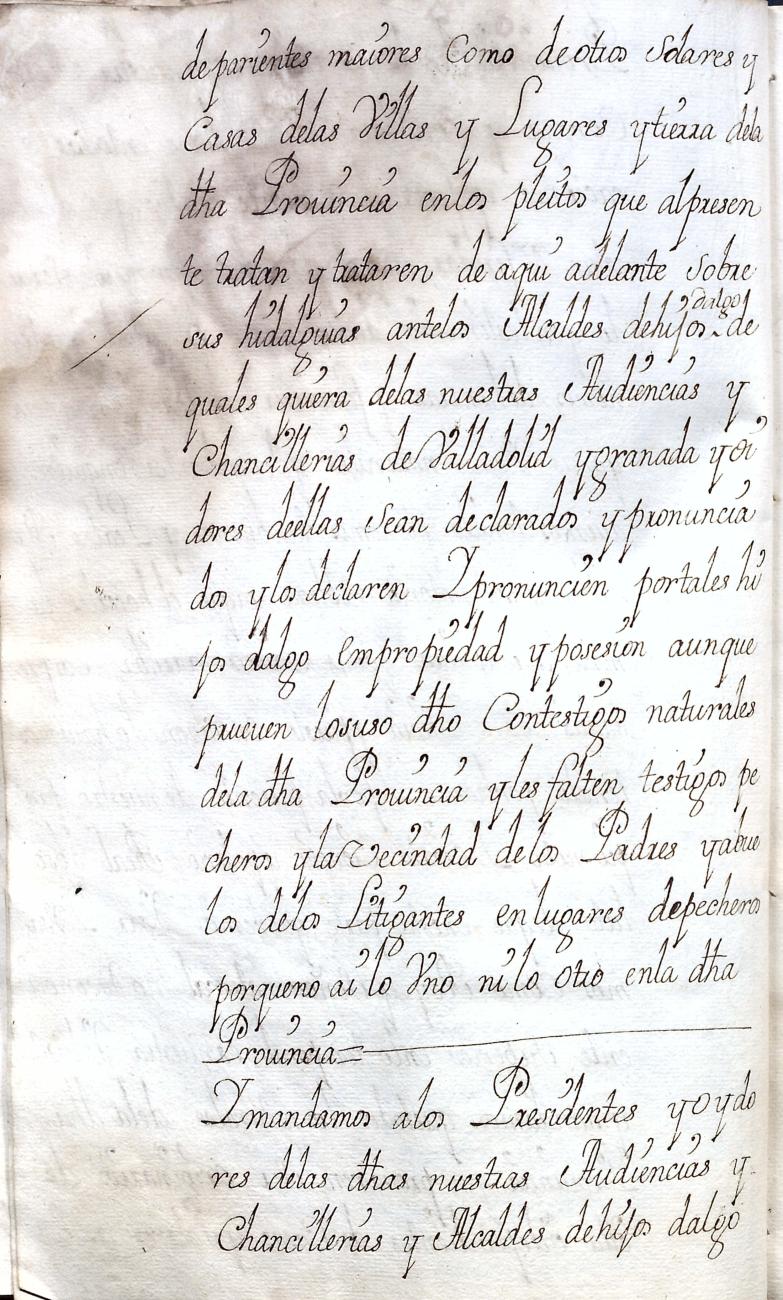 de parientes maiores Como de otros Solares y
Casas delas Villas y Lugares y tierra dela
dha Provincia enlos pleitos que alpresen
te tratan y trataren de aqui adelante sobre
dalgo
sus hidalguias antelos Alcaldes dehijos ^ de
quales quiera delas nuestras Audiencias y
Chancillerias de Valladolid y granada y oi
dores deellas Sean declarados y pronuncia
dos y los declaren Y pronuncien portales hi
jos dalgo Empropiedad y posesion aunque
prueuen losuso dho Contestigos naturales
dela dha Prouincia y les falten testigos pe
cheros y la Vecindad de los Padres y abue
los delos Litigantes en lugares depecheros
porqueno ai lo Vno ni lo otro enla dha
Prouincia=
Y mandamos alos Presidentes y oydo
res delas dhas nuestras Audiencias y
Chancillerias y Alcaldes dehijos dalgo